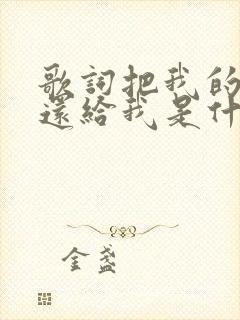 歌詞把我的
還給我是什
金盞